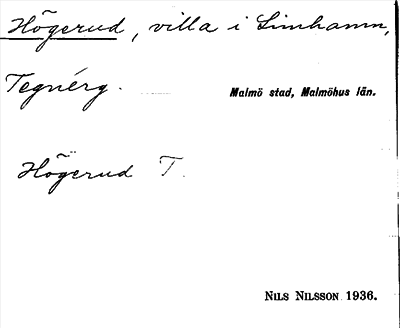 Högerud, villa i Limhamn,
Tegnérg.
Malmö stad, Malmöhus län.
Högerud T.
NILS NILSSON 1936.